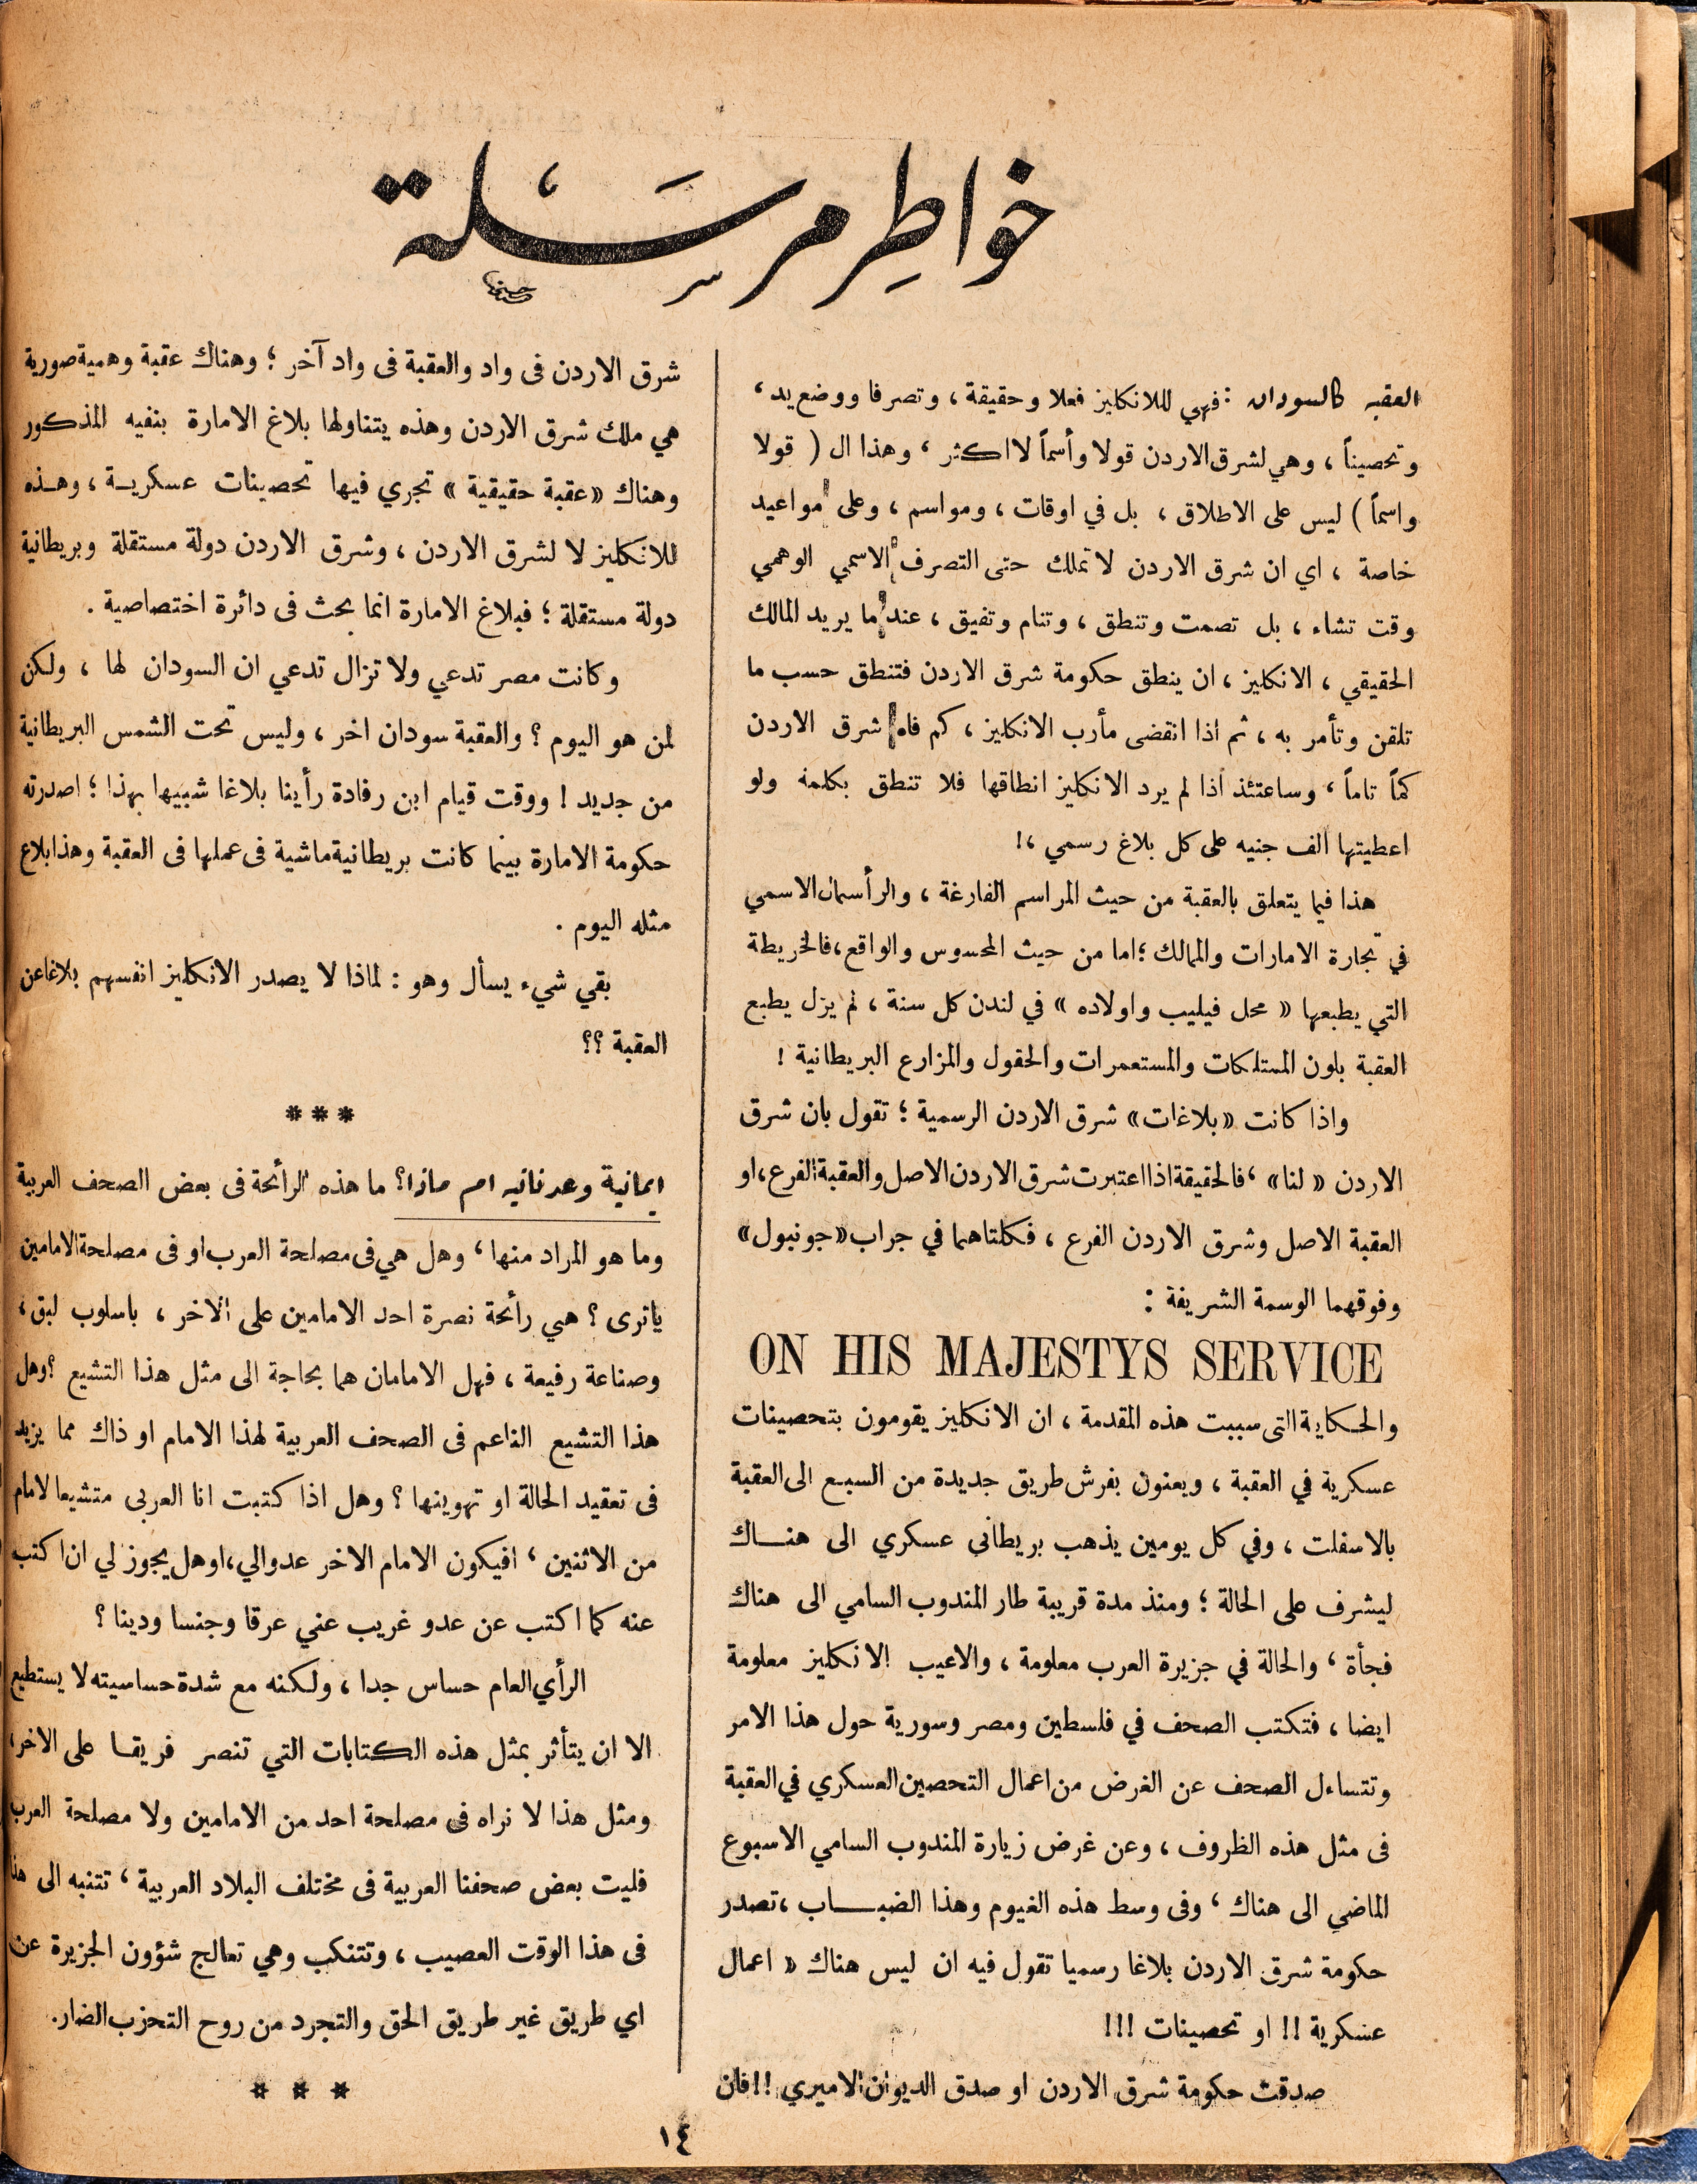 خواطر مرسلة
العقبه كالسودان : فهي للانكليز فعلا وحقيقة ، وتصرفا ووضع يد ،
وتحصيناً ، وهي لشرق الاردن قولا وأسماً لا اكثر ، وهذا ال ( قولا
واسماً ) ليس على الاطلاق ، بل في اوقات ، ومواسم ، وعلى مواعيد
خاصة ، اي ان شرق الاردن لا تملك حتى التصرف الاسمي الوهمي
وقت تشاء ، بل تصمت وتنطق ، وتنام وتفيق ، عند ما يريد المالك
الحقيقي ، الانكليز ، ان ينطق حكومة شرق الاردن فتنطق حسب ما
تلقن وتأمر به ، ثم اذا انقضى مأرب الانكليز ، كم فاه شرق الاردن
كمّاً تاماً ، وساعتئذ اذا لم يرد الانكليز انطاقها فلا تنطق بكلمة ولو
اعطيتها الف جنيه على كل بلاغ رسمي ،!
هذا فيما يتعلق بالعقبة من حيث المراسم الفارغة ، والرأسمال الاسمي
في تجارة الامارات والممالك ؛ اما من حيث المحسوس والواقع ، فالخريطة
التي يطبعها « محل فيليب واولاده » في لندن كل سنة ، لم يزل يطبع
العقبة بلون الممتلكات والمستعمرات والحقول والمزارع البريطانية !
واذا كانت «بلاغات» شرق الاردن الرسمية ؛ تقول بان شرق
الاردن « لنا» ، فالحقيقة اذا اعتبرت شرق الاردن الاصل والعقبة الفرع ، او
العقبة الاصل وشرق الاردن الفرع ، فكلتاهما في جراب «جونبول»
وفوقهما الوسمة الشريفة :
ON HIS MAJESTYS SERVICE
والحكاية التى سببت هذه المقدمة ، ان الانكليز يقومون بتحصينات
عسكرية في العقبة ، ويعنون بفرش طريق جديدة من السبع الى العقبة
بالاسفلت ، وفي كل يومين يذهب بريطاني عسكري الى هنـاك
ليشرف على الحالة ؛ ومنذ مدة قريبة طار المندوب السامي الى هناك
فجأة ، والحالة في جزيرة العرب معلومة ، والاعيب الانكليز معلومة
ايضا ، فتكتب الصحف في فلسطين ومصر وسورية حول هذا الامر
وتتساءل الصحف عن الغرض من اعمال التحصين العسكري في العقبة
فى مثل هذه الظروف ، وعن غرض زيارة المندوب السامي الاسبوع
الماضي الى هناك ، وفى وسط هذه الغيوم وهذا الضبـاب ، تصدر
حكومة شرق الاردن بلاغا رسميا تقول فيه ان ليس هناك « اعمال
عسكرية !! او تحصينات !!!
صدقت حكومة شرق الاردن او صدق الديوان الاميري !! فان
شرق الاردن فى واد والعقبة فى واد آخر ؛ وهناك عقبة وهمية صورية
هي ملك شرق الاردن وهذه يتناولها بلاغ الامارة بنفيه المذكور
وهناك «عقبة حقيقية » تجري فيها تحصينات عسكريـة ، وهـذه
للانكليز لا لشرق الاردن ، وشرق الاردن دولة مستقلة وبريطانية
دولة مستقلة ؛ فبلاغ الامارة انما بحث فى دائرة اختصاصية .
وكانت مصر تدعي ولا تزال تدعي ان السودان لها ، ولكن
لمن هو اليوم ؟ والعقبة سودان اخر ، وليس تحت الشمس البريطانية
من جديد ! ووقت قيام ابن رفادة رأينا بلاغا شبيها بهذا ؛ اصدرته
حكومة الامارة بينما كانت بريطانية ماشية فى عملها فى العقبة وهذا بلاغ
مثله اليوم .
بقي شيء يسأل وهو : لماذا لا يصدر الانكليز انفسهم بلاغا عن
العقبة ؟؟
* * *
ايمانية وعدنانيه ام ماذا ؟ ما هذه الرائحة فى بعض الصحف العربية
وما هو المراد منها ، وهل هي فى مصلحة العرب او فى مصلحة الامامين
ياترى ؟ هي رائحة نصرة احد الامامين على الاخر ، باسلوب لبق ،
وصناعة رفيعة ، فهل الامامان هما بحاجة الى مثل هذا التشيع ؟ وهل
هذا التشيع الناعم فى الصحف العربية لهذا الامام او ذاك مما يزيد
فى تعقيد الحالة او تهوينها ؟ وهل اذا كتبت انا العربى متشيعا لامام
من الاثنين ، افيكون الامام الاخر عدوا لي ، او هل يجوز لي ان اكتب
عنه كما اكتب عن عدو غريب عني عرقا وجنسا ودينا ؟
الرأي العام حساس جدا ، ولكنه مع شدة حساسيته لا يستطيع
الا ان يتأثر بمثل هذه الكتابات التي تنصر فريقا على الاخر ،
ومثل هذا لا نراه فى مصلحة احد من الامامين ولا مصلحة العرب
فليت بعض صحفنا العربية فى مختلف البلاد العربية ، تتنبه الى هذا
فى هذا الوقت العصيب ، وتتنكب وهي تعالج شؤون الجزيرة عن
اي طريق غير طريق الحق والتجرد من روح التحزب الضار.
* * *
١٤